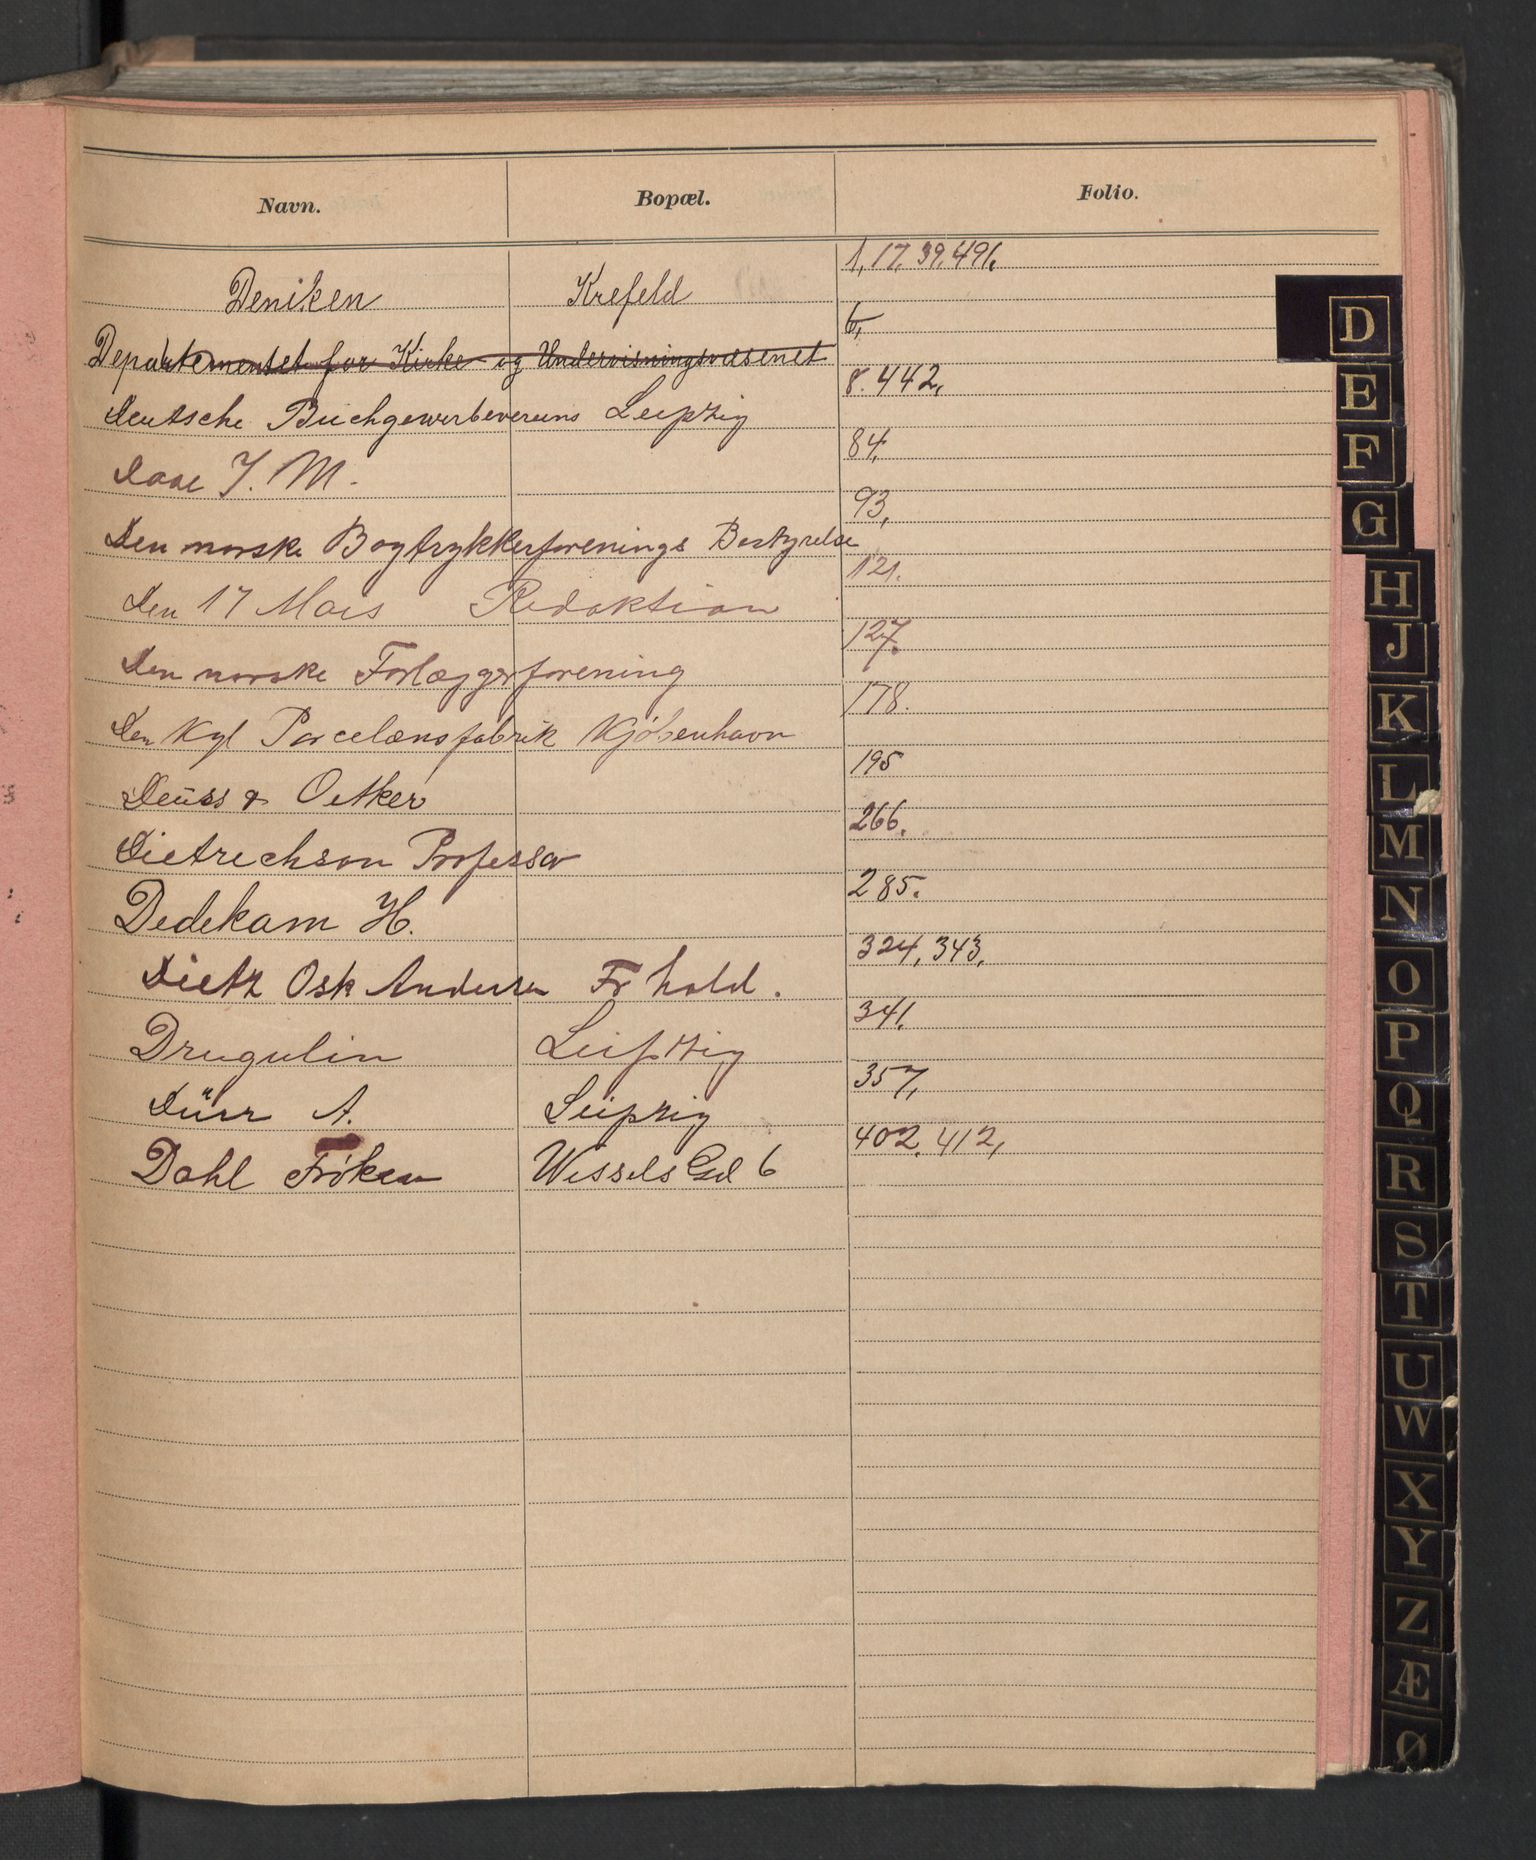 Navn. Bopæl. Folio.
Deniken Krefeld 1, 17, 39, 491.
Departementet for Kirke og Undervisningsvæsenet 6,
Deutsche Buchgewerbevereins Leipzig 8. 442,
Daae J. M. 84,
Den norske Bogtrykkerforenings Bestyrelse 93,
Den 17 Mais Redaktion 121.
Den norske Forlæggerforening 127.
Den Kgl Porcelænsfabrik Kjöbenhavn 178.
Deuss & Oetker 195
Dietrichson Professor 266.
Dedekam H. 285.
Dietz Osk Andersen Fr hald. 324, 343,
Drugulin Leipzig 341.
Dürr A. Leipzig 357,
Dahl Frøken Wessels Gd 6 402, 412,
D
E
F
G
H
J
K
L
M
N
O
P
Q
R
S
T
U
W
X
Y
Z
Æ
Ø